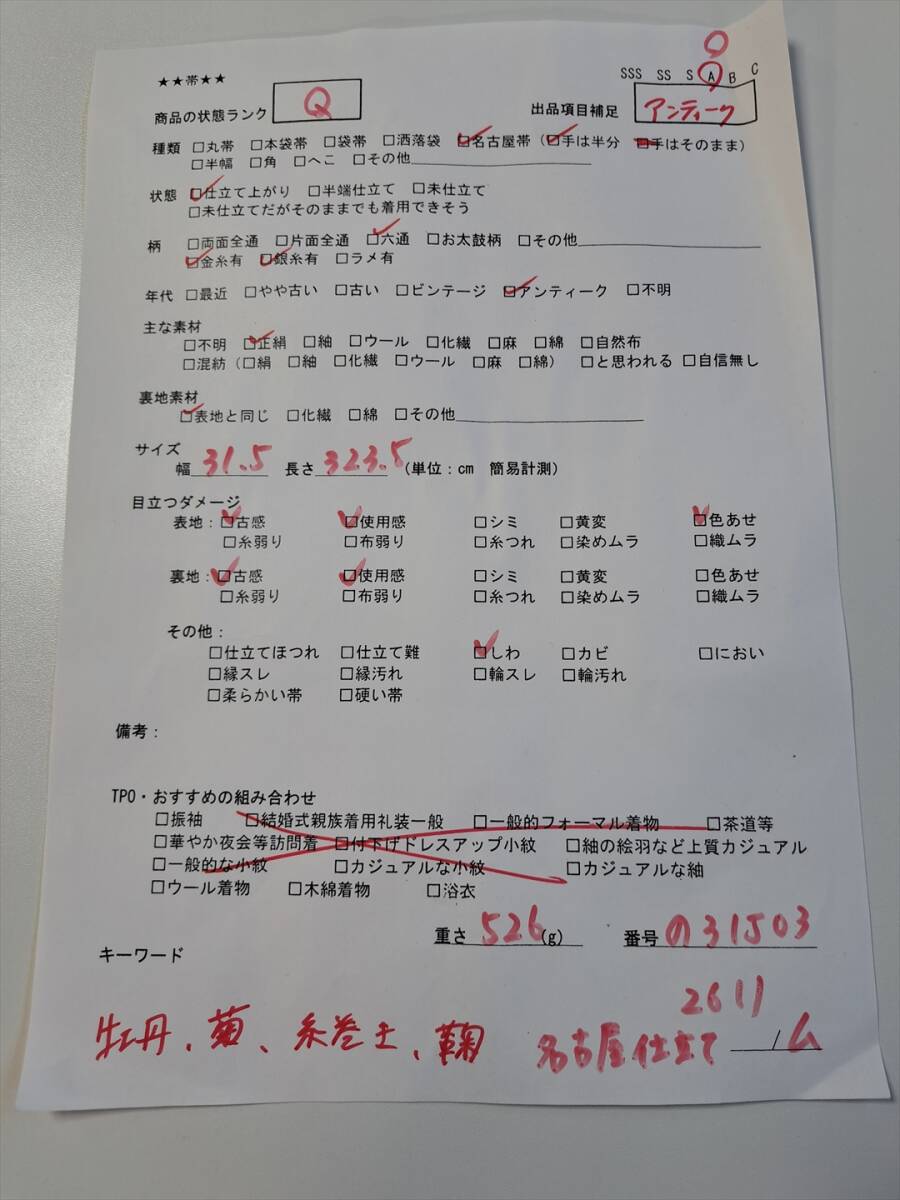 SSS SS S A B C
★★帯★★
商品の状態ランク Q 出品項目補足 アンティーク
種類 □丸帯 □本袋帯 □袋帯 □洒落袋 □名古屋帯（□手は半分 □手はそのまま）
□半幅 □角 □へこ □その他
状態 □仕立て上がり □半端仕立て □未仕立て
□未仕立てだがそのままでも着用できそう
柄 □両面全通 □片面全通 □六通 □お太鼓柄 □その他
□金糸有 □銀糸有 □ラメ有
年代 □最近 □やや古い □古い □ビンテージ □アンティーク □不明
主な素材
□不明 □正絹 □紬 □ウール □化繊 □麻 □綿 □自然布
□混紡（□絹 □紬 □化繊 □ウール □麻 □綿） □と思われる □自信無し
裏地素材
□表地と同じ □化繊 □綿 □その他
サイズ
幅 31.5 長さ 323.5 （単位：cm 簡易計測）
目立つダメージ
表地：□古感 □使用感 □シミ □黄変 □色あせ
□糸弱り □布弱り □糸つれ □染めムラ □織ムラ
裏地：□古感 □使用感 □シミ □黄変 □色あせ
□糸弱り □布弱り □糸つれ □染めムラ □織ムラ
その他：
□仕立てほつれ □仕立て難 □しわ □カビ □におい
□縁スレ □縁汚れ □輪スレ □輪汚れ
□柔らかい帯 □硬い帯
備考：
TPO・おすすめの組み合わせ
□振袖 □結婚式親族着用礼装一般 □一般的フォーマル着物 □茶道等
□華やか夜会等訪問着 □付下げドレスアップ小紋 □紬の絵羽など上質カジュアル
□一般的な小紋 □カジュアルな小紋 □カジュアルな紬
□ウール着物 □木綿着物 □浴衣
重さ 526 (g) 番号 の31503
キーワード
2611
牡丹、菊、糸巻き、鞠 名古屋仕立て / ム